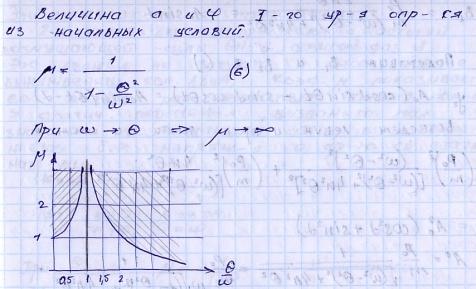 Величина a и φ I-го ур-я опр-ся
из начальных условий.
μ = 1 / (1 - θ²/ω²) (6)
При ω → θ ⇒ μ → ∞
μ
2
1
0,5 1 1,5 2 θ/ω